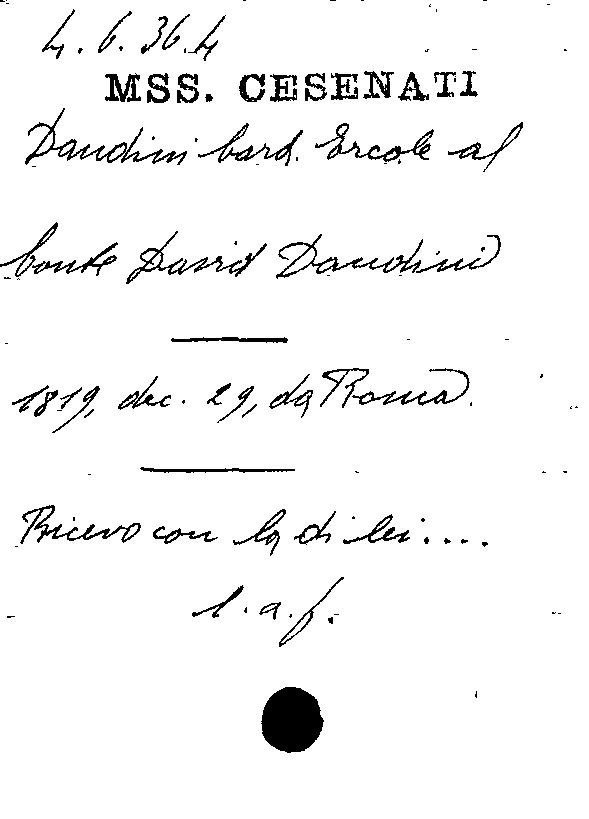 4.6.36.4
MSS. CESENATI
Dandini Card. Ercole al
Conte David Dandini
1819, dec. 29, da Roma.
Ricevo con la di lei....
l.a.f.